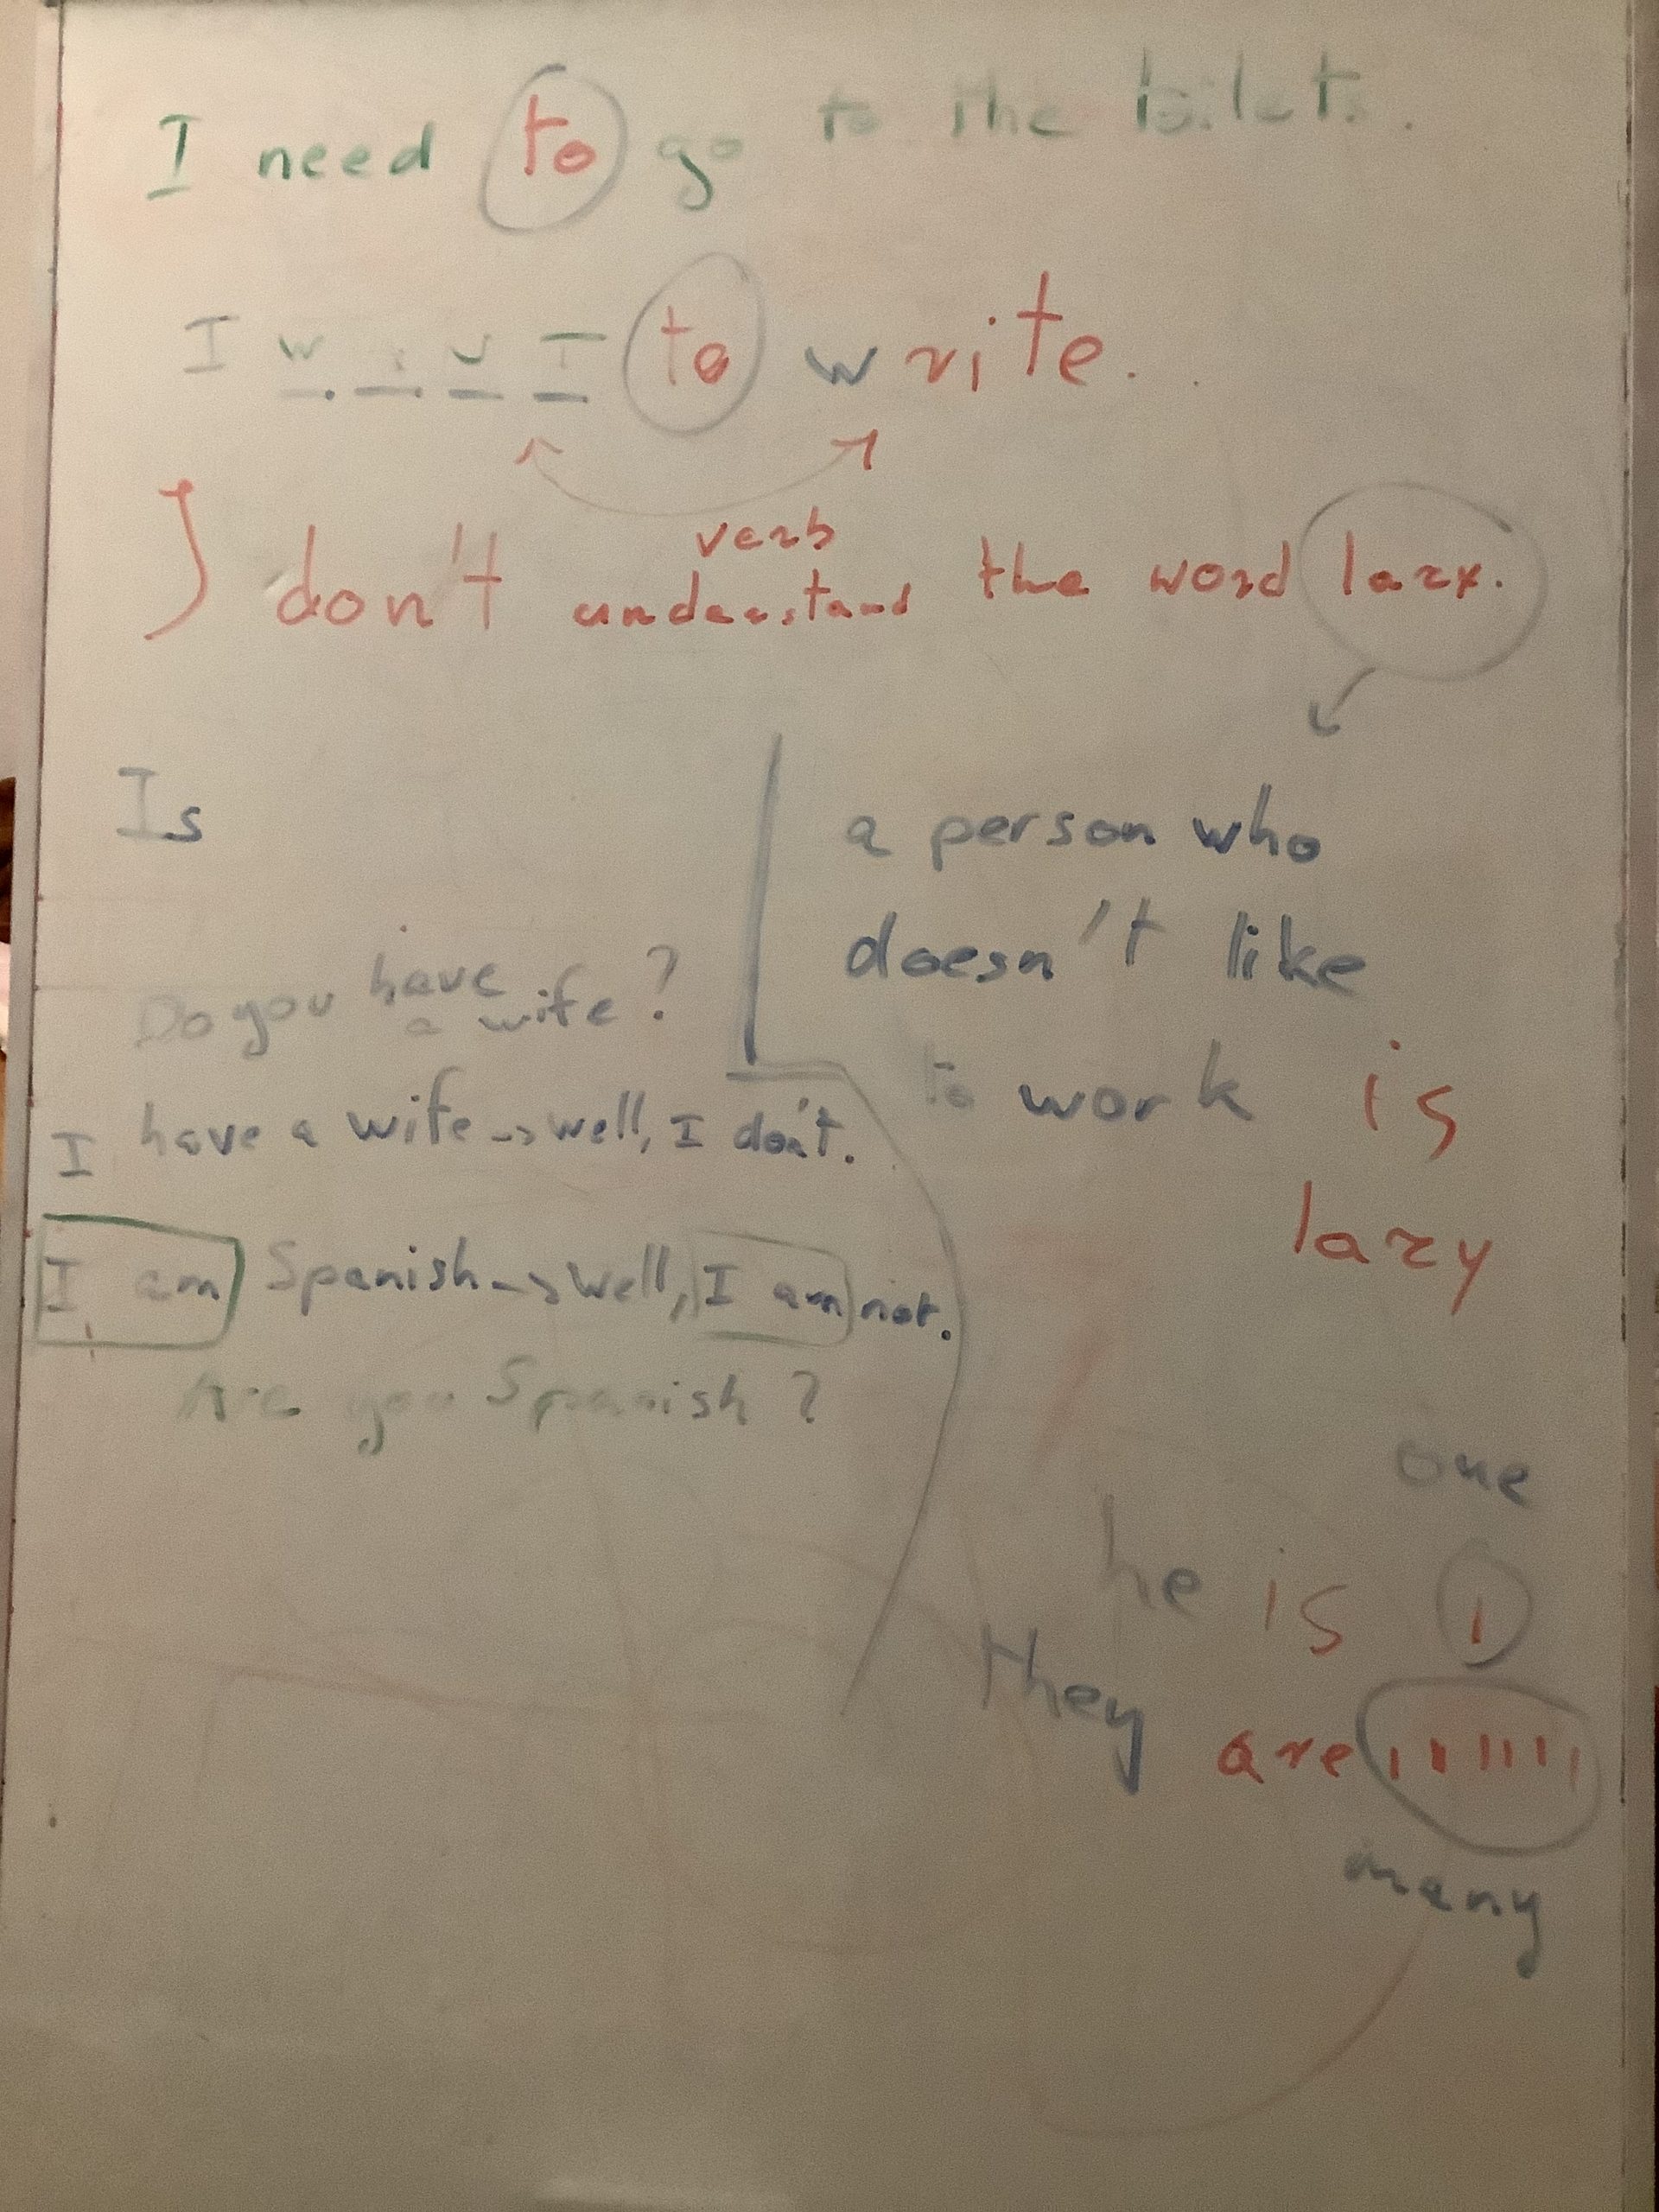 I need to go to the toilet.
I to write.
verb
I don't understand the word lazy.
Is
Do you have
a wife?
I have a wife -> well, I don't.
I am Spanish -> well, I am not.
Are you Spanish?
a person who
doesn't like
to work is
lazy
one
he is
they are
many